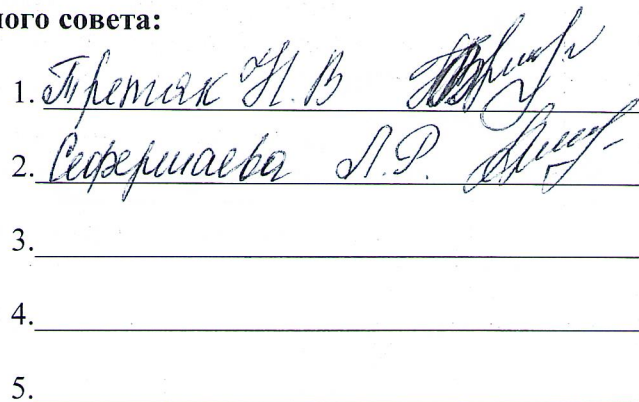 ного совета:
1. Третяк Н. В
2. Сефершаева Л. Р.
3.
4.
5.